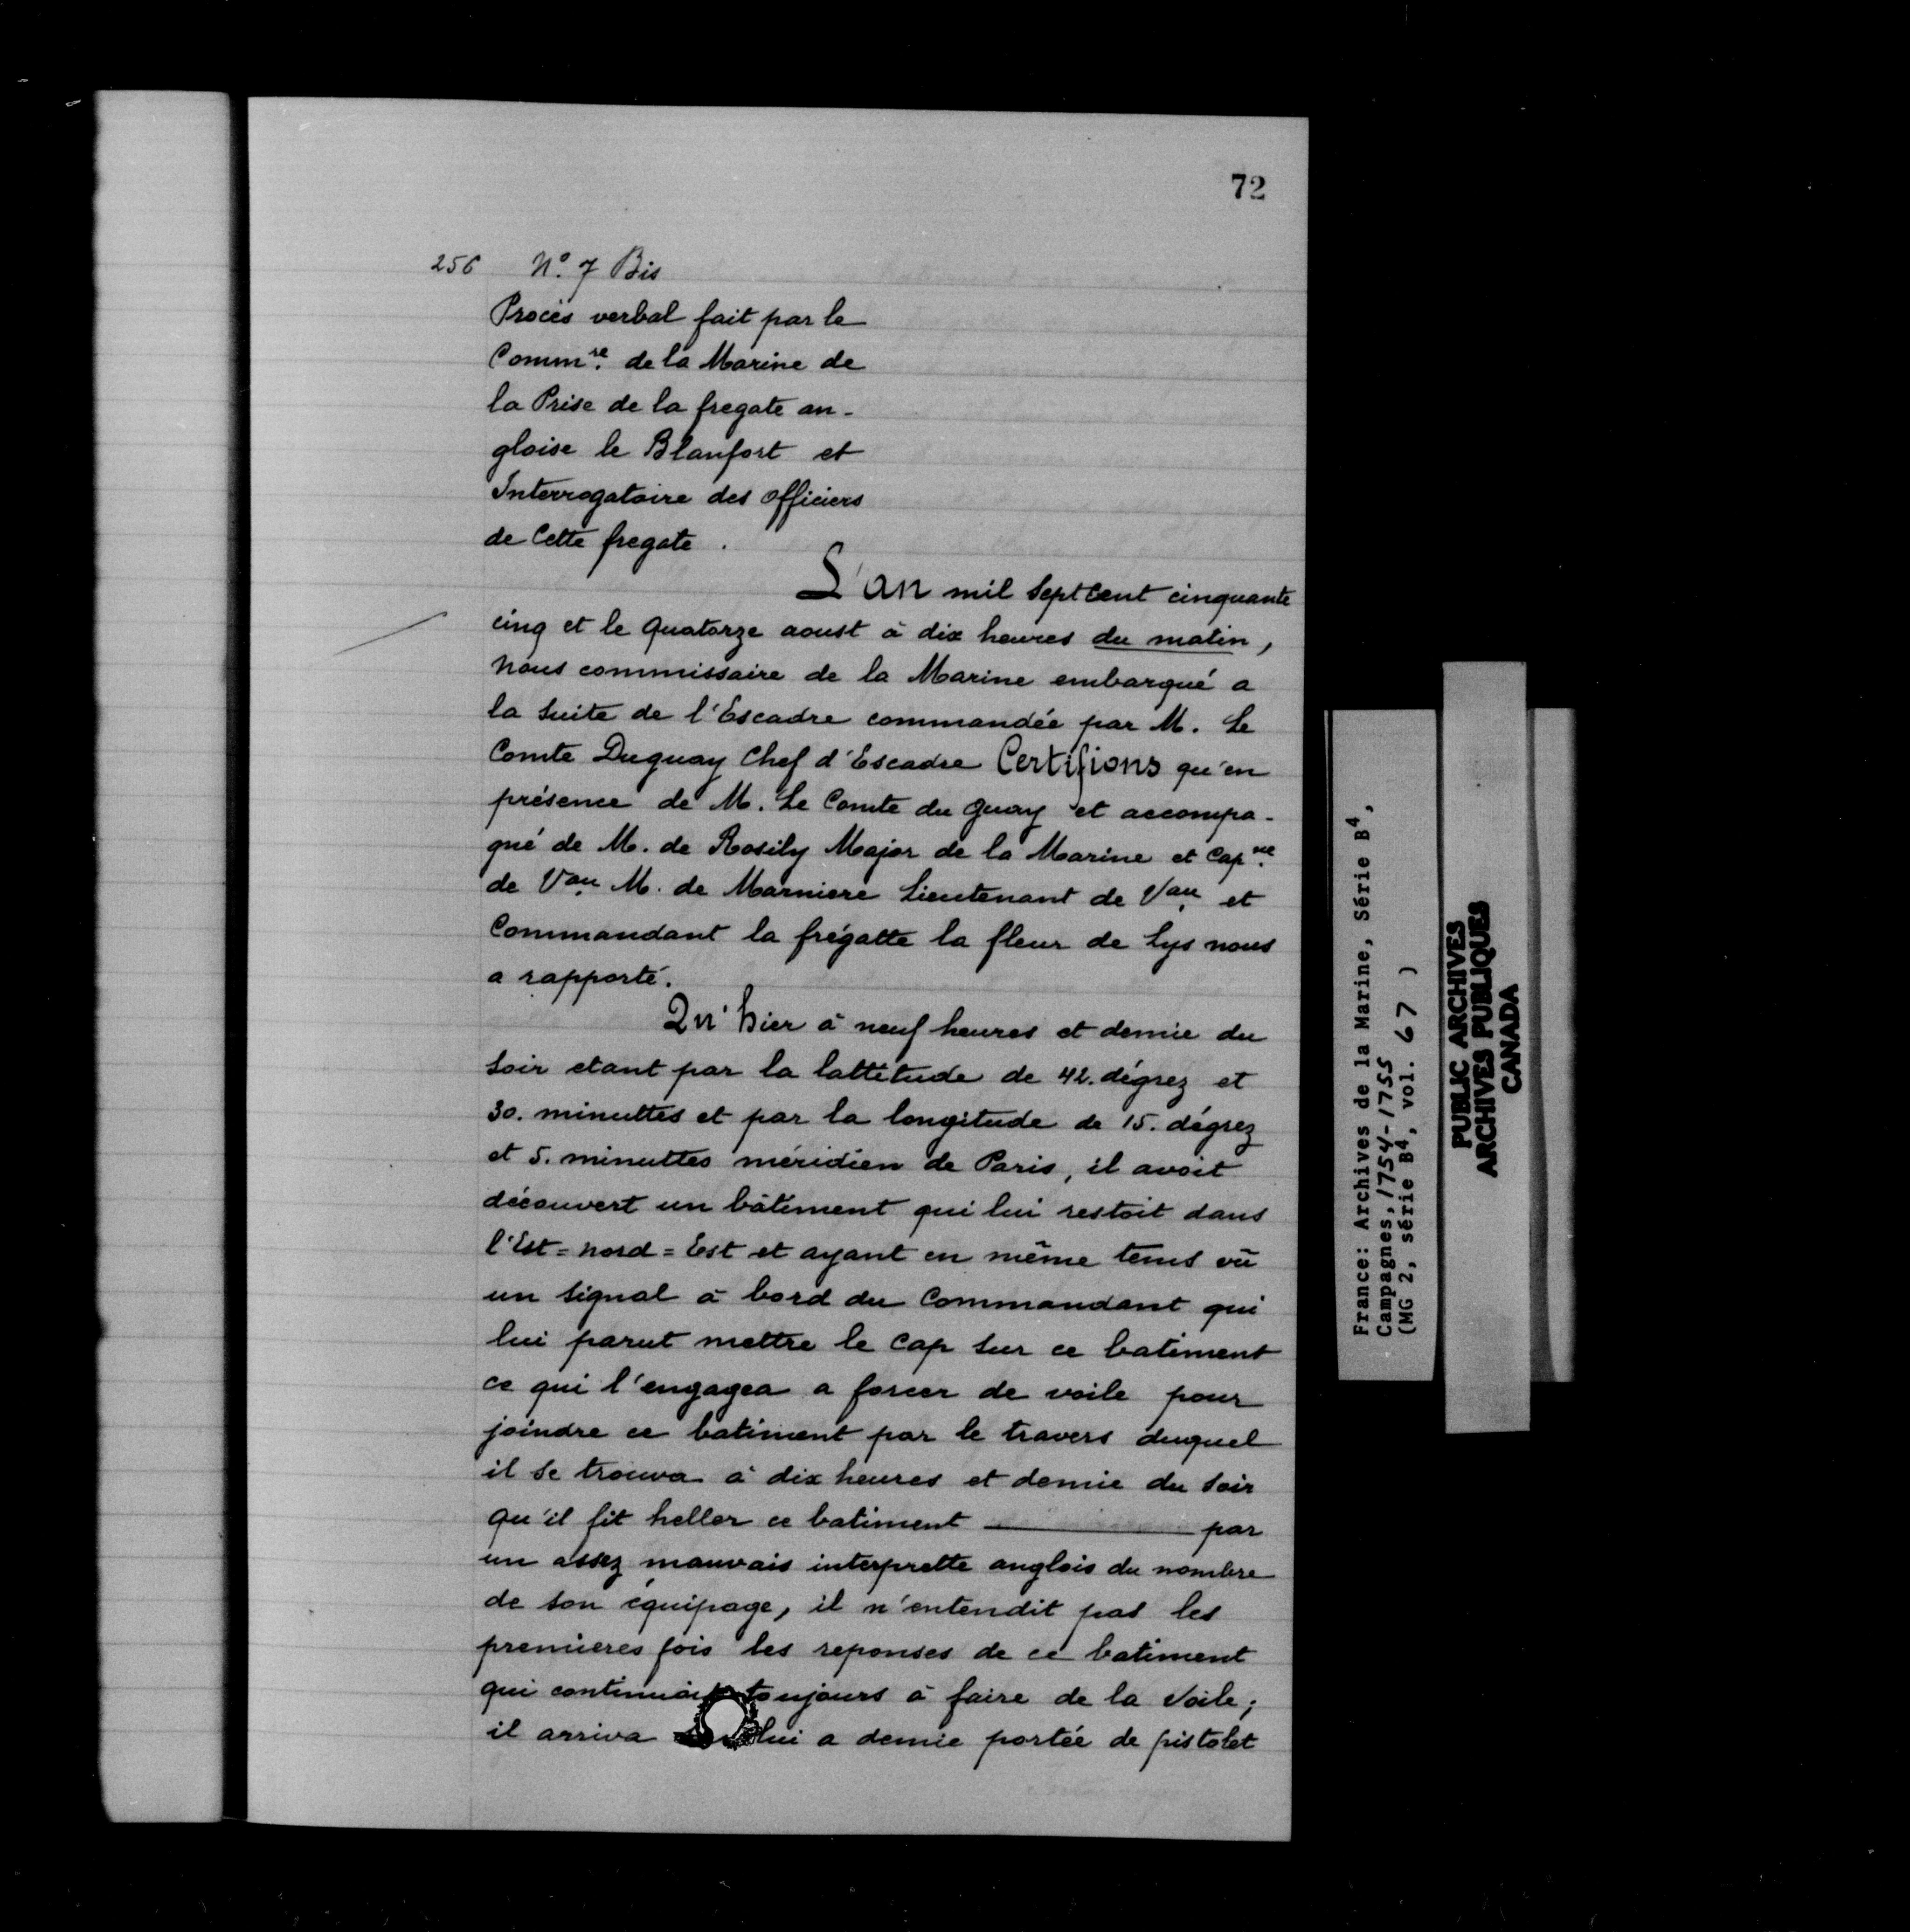 72
256 N.º 7 Bis
Procès verbal fait par le
Comm.re de la Marine de
la Prise de la fregate an-
gloise le Blanfort et
Interrogatoire des officiers
de Cette fregate.
L'an mil Sept Cent cinquante
cinq et le quatorze aoust à dix heures du matin,
nous commissaire de la Marine embarqué a
la Suite de l'Escadre commandée par M. Le
Comte Duguay Chef d'Escadre Certifions qu'en
présence de M. Le Comte du guay et accompa-
gné de M. de Rosily Major de la Marine et Cap.ne
de V.au M. de Marniere Lieutenant de V.au et
Commandant la frégatte la fleur de Lys nous
a rapporté.
Qu'hier à neuf heures et demie du
Soir etant par la lattitude de 42. dégrez et
30. minuttes et par la longitude de 15. dégrez
et 5. minuttes méridien de Paris, il avoit
découvert un bâtiment qui lui restoit dans
l'Est=nord=Est et ayant en même tems vû
un Signal à bord du Commandant qui
lui parut mettre le Cap Sur ce batiment
ce qui l'engagea a forcer de voile pour
joindre ce batiment par le travers duquel
il Se trouva à dix heures et demie du Soir
qu'il fit heller ce batiment ——— par
un assez mauvais interprette anglois du nombre
de Son équipage, il n'entendit pas les
premieres fois les reponses de ce batiment
qui continuait toujours à faire de la Voile;
il arriva lui a demie portée de pistolet
France: Archives de la Marine, Série B4,
Campagnes, 1754-1755
(MG 2, série B4, vol. 67 )
PUBLIC ARCHIVES
ARCHIVES PUBLIQUES
CANADA